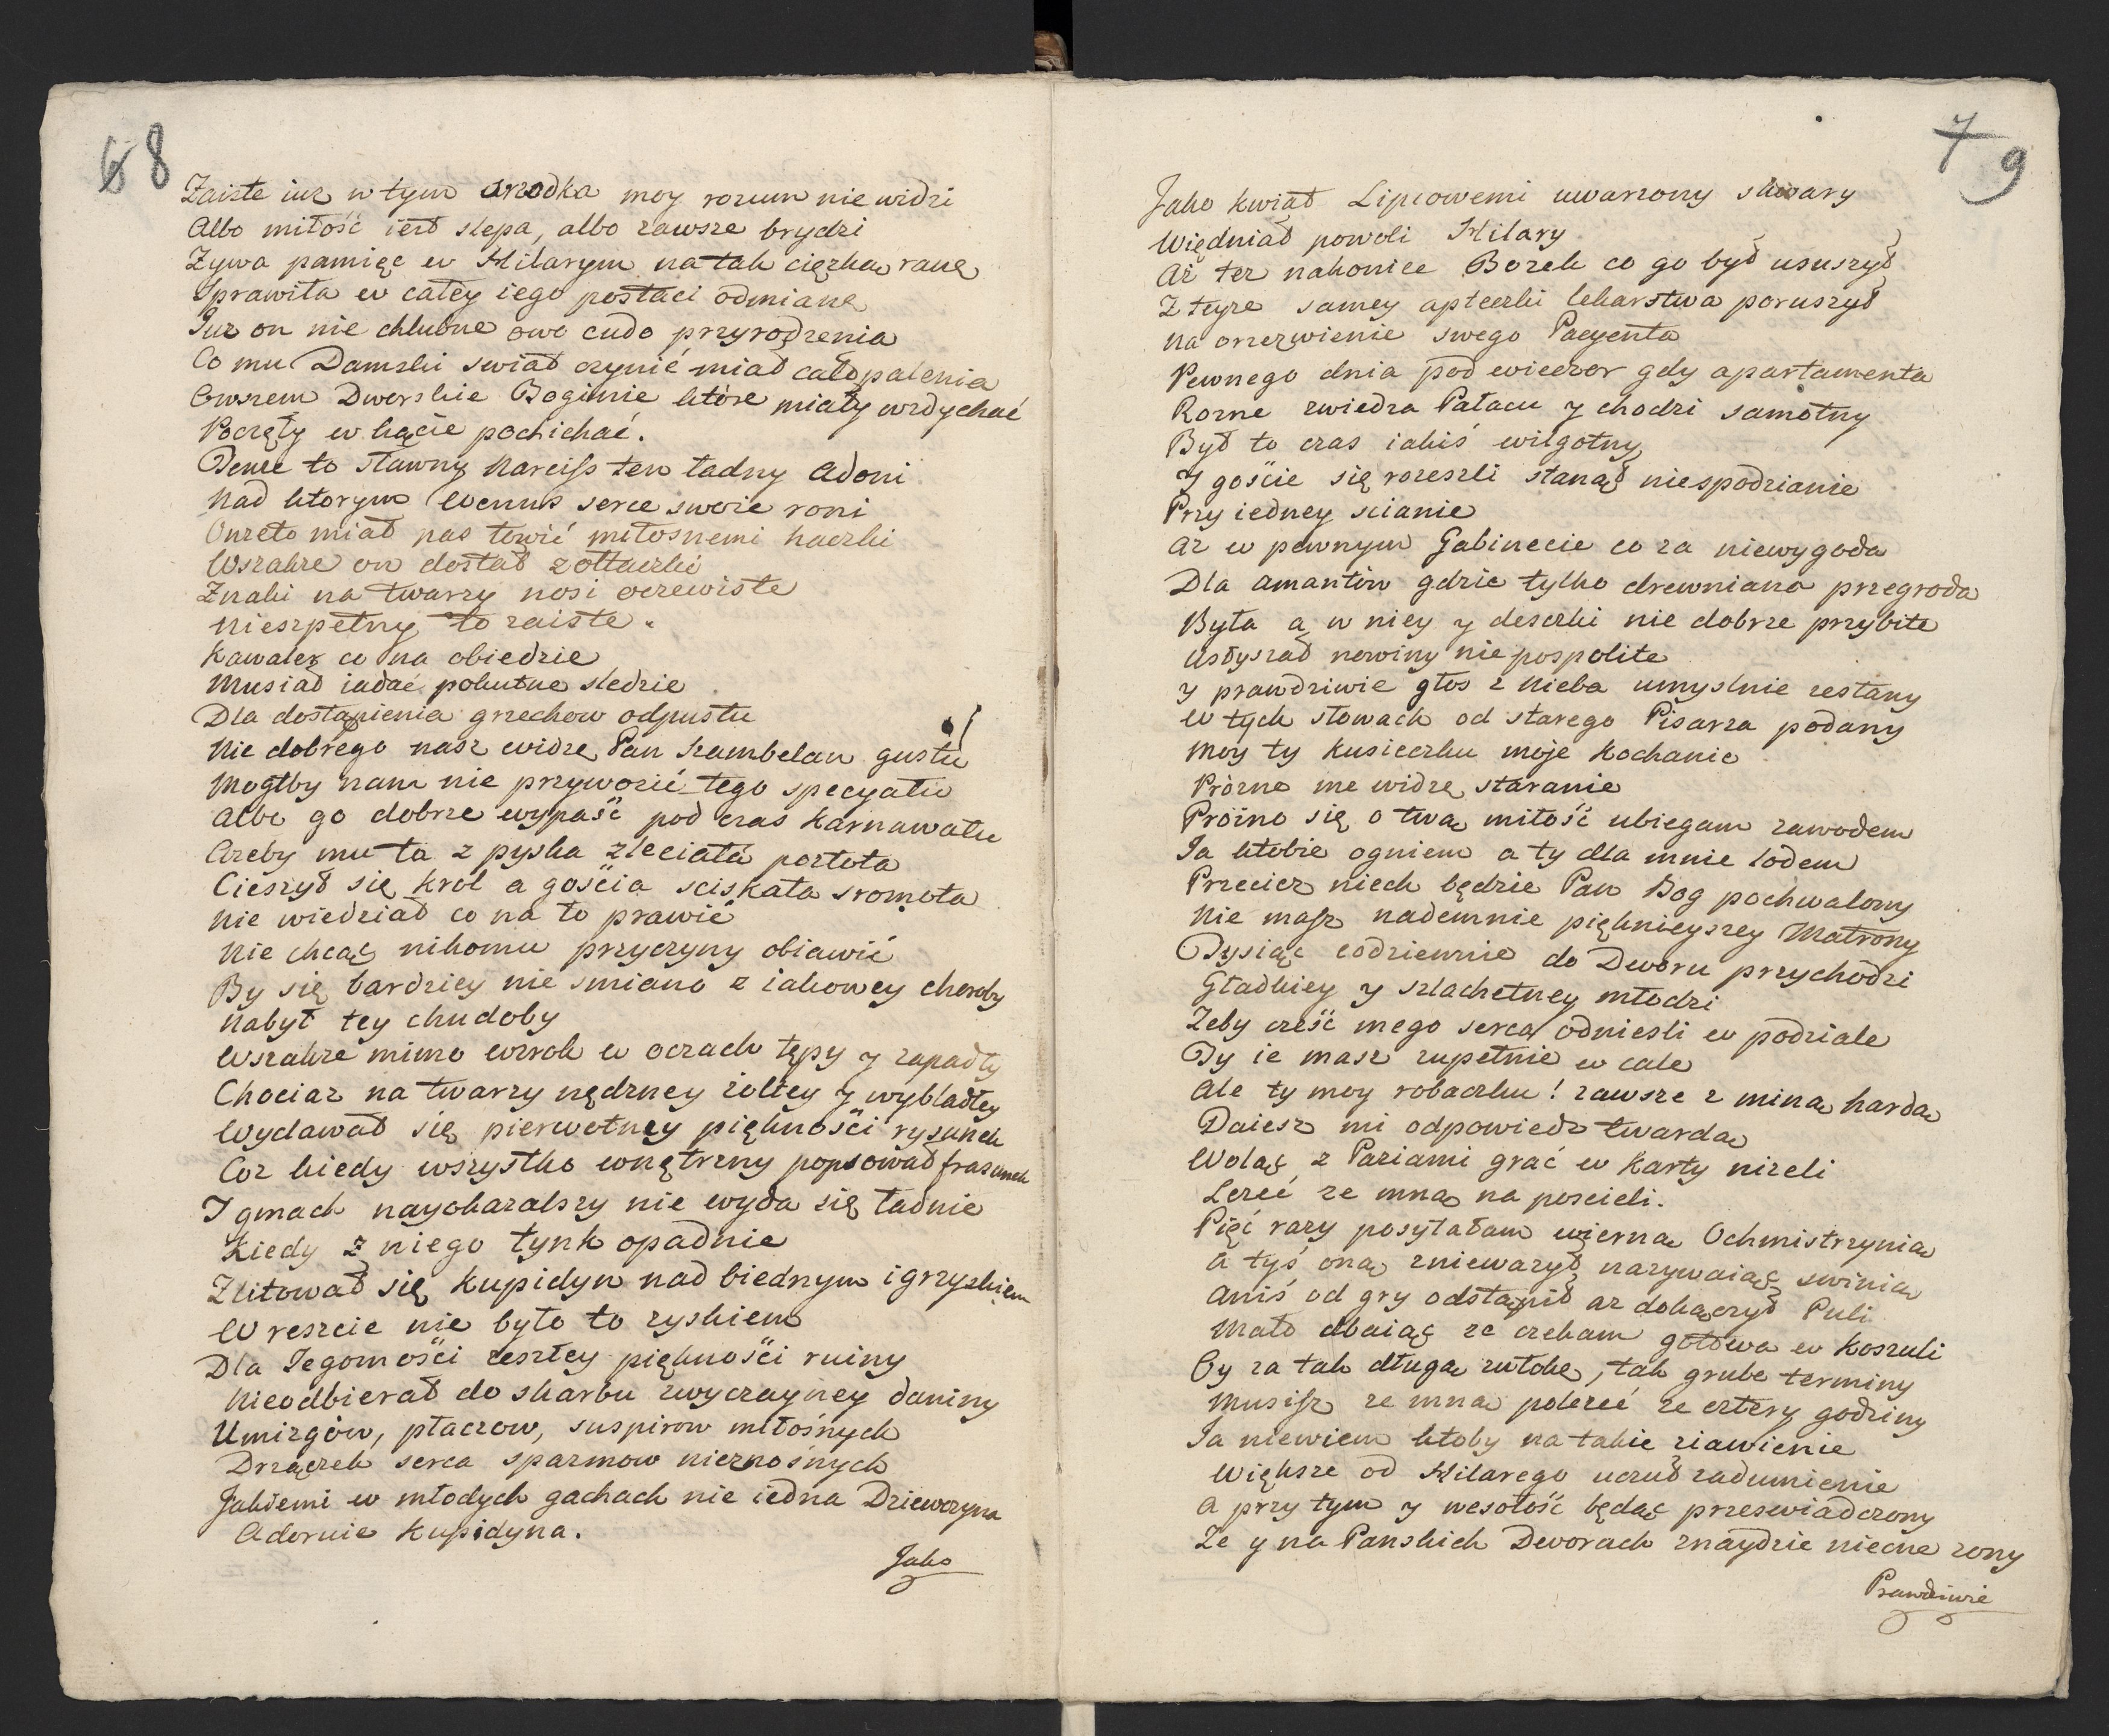 68
Zaiste iuz w tym srzodka moy rozum nie widzi
Albo miłość iest slepa, albo zawsze brydzi
Zywa pamięc w Hilarym na tak cięzką ranę
Sprawiła w całey iego postaci odmianę
Juz on nie chlubne owo cudo przyrodzenia
Co mu Damski swiat czynić miał całopalenia
Owszem Dworskie Boginie które miały wzdychać
Poczęły w kącie pochichać.
Tenze to sławny Narciss ten ładny Adoni
Nad ktorym Wenus serce swoie roni
Onzeto miał nas łowić miłosnemi haczki
Wszakze on dostał zołtaczki
Znaki na twarzy nosi oczewiste
Nieszpetny to zaiste.
Kawaler co na obiedzie
Musiał iadać pokutne sledzie
Dla dostąpienia grzechow odpustu
Nie dobrego nasz widzę Pan Szambelan gustu
Mogłby nam nie przywozić tego specyału
Albo go dobrze wypaść pod czas Karnawału
Azeby mu ta z pyska zleciała pozłota
Cieszył się krol a gościa sciskała sromota
Nie wiedział co na to prawić
Nie chcąc nikomu przyczyny obiawić
By się bardziey nie smiano z iakowey choroby
Nabył tey chudoby
Wszakze mimo wzrok w oczach tępy y zapadły
Chociaz na twarzy nędzney zołtey y wybladłey
Wydawał się pierwotney piękności rysunek
Coz kiedy wszystko wnętrzny popsował frasunek
I gmach nayokazalszy nie wyda się ładnie
Kiedy z niego tynk opadnie
Zlitował się Kupidyn nad biednym igrzyskiem
Wreszcie nie było to zyskiem
Dla Jegomości zeszłey piękności ruiny
Nieodbierał do skarbu zwyczayney daniny
Umizgów, płaczow, suspirow miłośnych
Drzączek serca spazmow nieznośnych
Jakiemi w młodych gachach nie iedna Dziewczyna
Adoruie Kupidyna.
Jako
7 9
Jako kwiat Lipcowemi uwarzony skwary
Więdniał powoli Hilary
Aż tez nakoniec Bozek co go był ususzył
Z teyze samey apteczki lekarstwa poruszył
Na orzezwienie swego Pacyenta
Pewnego dnia pod wieczor gdy apartamenta
Rozne zwiedza Pałacu y chodzi samotny
Był to czas iakiś wilgotny
Y goście się rozeszli stanął niespodzianie
Przy iedney scianie
Az w pewnym Gabinecie co za niewygoda
Dla amantów gdzie tylko drewniana przegroda
Była a w niey y deszczki nie dobrze przybite
Usłyszał nowiny nie pospolite
Y prawdziwie głos z Nieba umyslnie zesłany
W tych słowach od starego Pisarza podany
Moy ty kusieczku moje kochanie
Prózne me widzę staranie
Próżno się o twą miłość ubiegam zawodem
Ja ktobie ogniem a ty dla mnie lodem
Przeciez niech będzie Pan Bog pochwalony
Nie masz nademnie pięknieyszey Matrony
Tysiąc codziennie do Dworu przychodzi
Gładkiey y szlachetney młodzi
Zeby cześć mego serca odniesli w podziale
Ty ie masz zupełnie w cale
Ale ty moy robaczku! zawsze z miną hardą
Daiesz mi odpowiedz twardą
Woląc z Paziami grać w karty nizeli
Lezeć ze mną na poscieli.
Pięć razy posyłałam wierną Ochmistrzynią
A tyś oną zniewazył nazywaiąc swinią
Aniś od gry odstąpił az dokączył Puli
Mało dbaiąc ze czekam gotowa w koszuli
Oy za tak długą zwłokę, tak grube terminy
Musisz ze mną polezeć ze cztery godziny
Ja niewiem ktoby na takie ziawienie
Większe od Hilarego uczuł zadumienie
A przy tym y wesołość będąc przeswiadczony
Ze y na Panskich Dworach znaydzie niecne zony
Prawdziwie